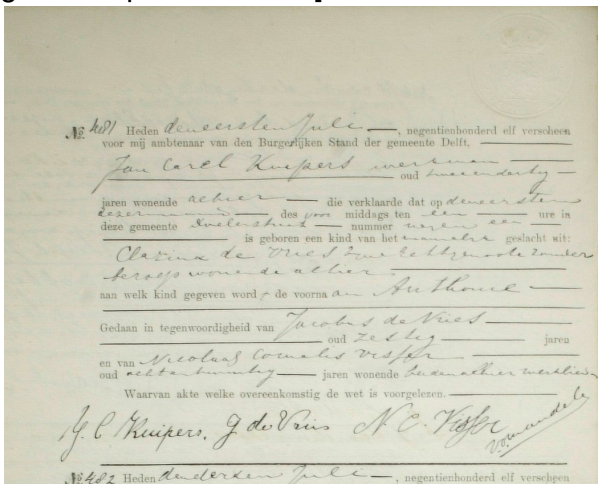 No. 481 Heden den eersten Juli, negentienhonderd elf verscheen
voor mij ambtenaar van den Burgerlijken Stand der gemeente Delft,
Jan Carel Kuipers werkman
oud tweeendertig
jaren wonende alhier die verklaarde dat op den eersten
dezer maand des voor middags ten een ure in
deze gemeente nummer negen een
is geboren een kind van het mannelijk geslacht uit:
Clazina de Vries zijne echtgenoote zonder
beroep wonende alhier
aan welk kind gegeven word de voorna am Anthonie
Gedaan in tegenwoordigheid van Jacobus de Vries
oud zestig jaren
en van Nicolaas Cornelis Visser
oud achtentwintig jaren wonende beiden alhier werklieden
Waarvan akte welke overeenkomstig de wet is voorgelezen.
J. C. Kuipers. J de Vries N. C. Visser
No. 482 Heden den derden Juli, negentienhonderd elf verschenen